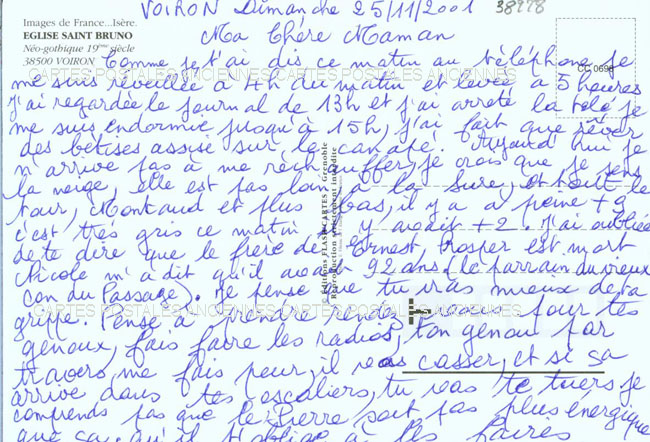 VOIRON Dimanche 25/11/2001 38978
Images de France...Isère.
EGLISE SAINT BRUNO
Néo-gothique 19ème siècle
38500 VOIRON
CC 0698
Ma Chère Maman
Comme je t'ai dis ce matin au téléphone je
me suis réveillée à 4h du matin et levée a 5 heures
j'ai regardée le journal de 13h et j'ai arreté la télé je
me suis endormie jusqu'à 15h, j'ai fait que rêver
des betises assise sur le canapé. Aujourd hui je
n'arrive pas à me réchauffer, je crois que je sens
la neige, elle est pas loin à la Sure, et tout le
tour, Montaud et plus bas, il y a a peine + 9
c'est très gris ce matin il y avait + 2. J'ai oubliée
de te dire que le frère de Ernest Prosper est mort
Nicole m'a dit qu'il avait 92 ans (le parrain du vieux
con du Passage). Je pense que tu vas mieux de ta
grippe. Pense à prendre rendez vous pour tes
genoux, fais faire les radios, ton genou par
travers, me fais peur, il va casser, et si sa
arrive dans tes escaliers, tu vas te tuer, je
comprends pas que le Pierre soit pas plus énergique
que sa, qu'il t'oblige à les faires
Editions FLASH CARTES - Grenoble
Reproduction strictement interdite
CARTES POSTALES ANCIENNES CARTES POSTALES ANCIENNES
CARTES POSTALES ANCIENNES CARTES POSTALES ANCIENNES